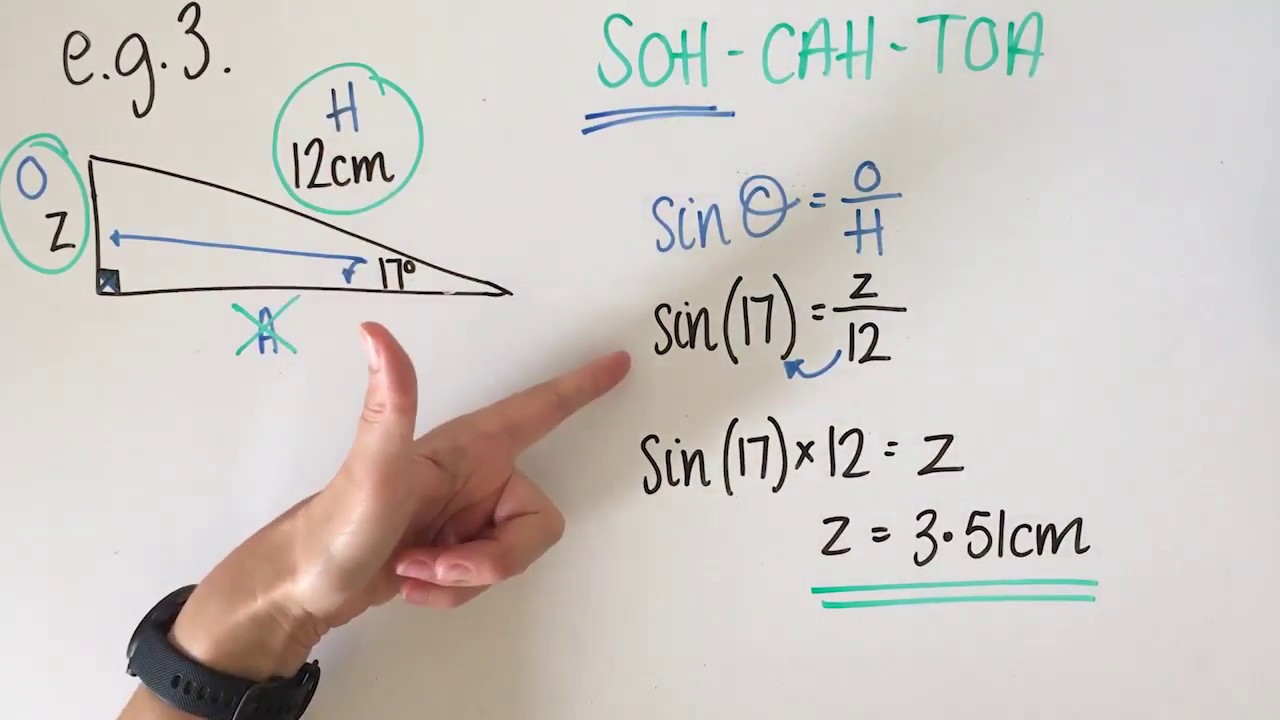 e.g.3.
SOH-CAH-TOA
H
12cm
O
z
17°
A
sin θ = O/H
sin(17) = z/12
sin(17)×12 = z
z = 3.51cm